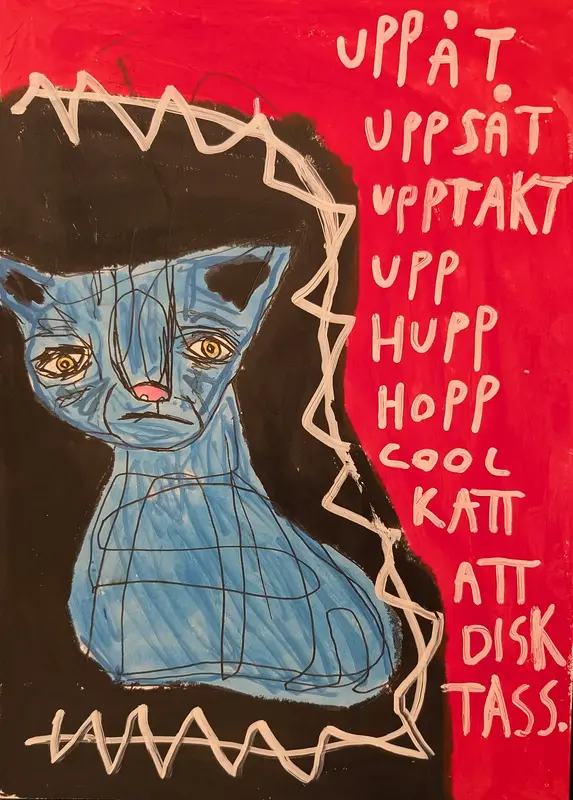 UPPÅT
UPPSÅT
UPPTAKT
UPP
HUPP
HOPP
COOL
KATT
ATT
DISK
TASS.